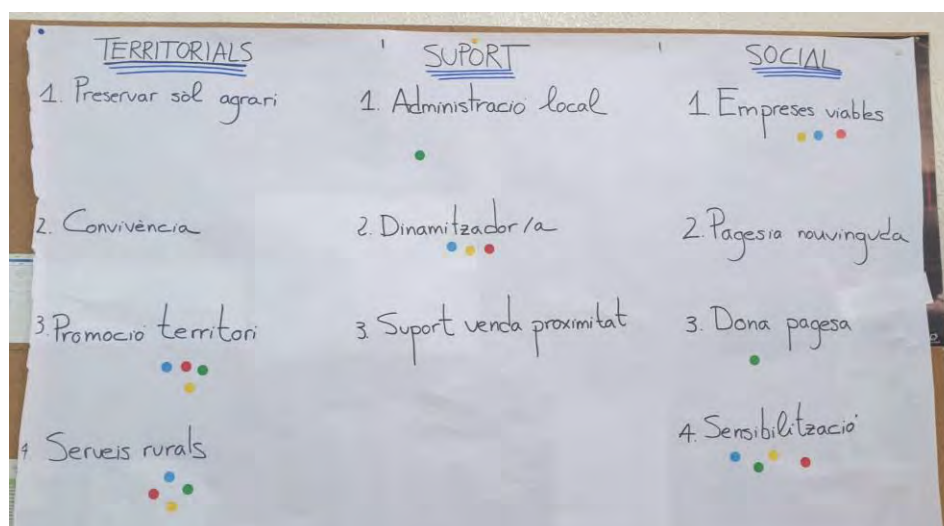 TERRITORIALS
1. Preservar sòl agrari
2. Convivència
3. Promoció territori
4. Serveis rurals
SUPORT
1. Administració local
2. Dinamitzador/a
3. Suport venda proximitat
SOCIAL
1 Empreses viables
2. Pagesia nouvinguda
3. Dona pagesa
4. Sensibilització